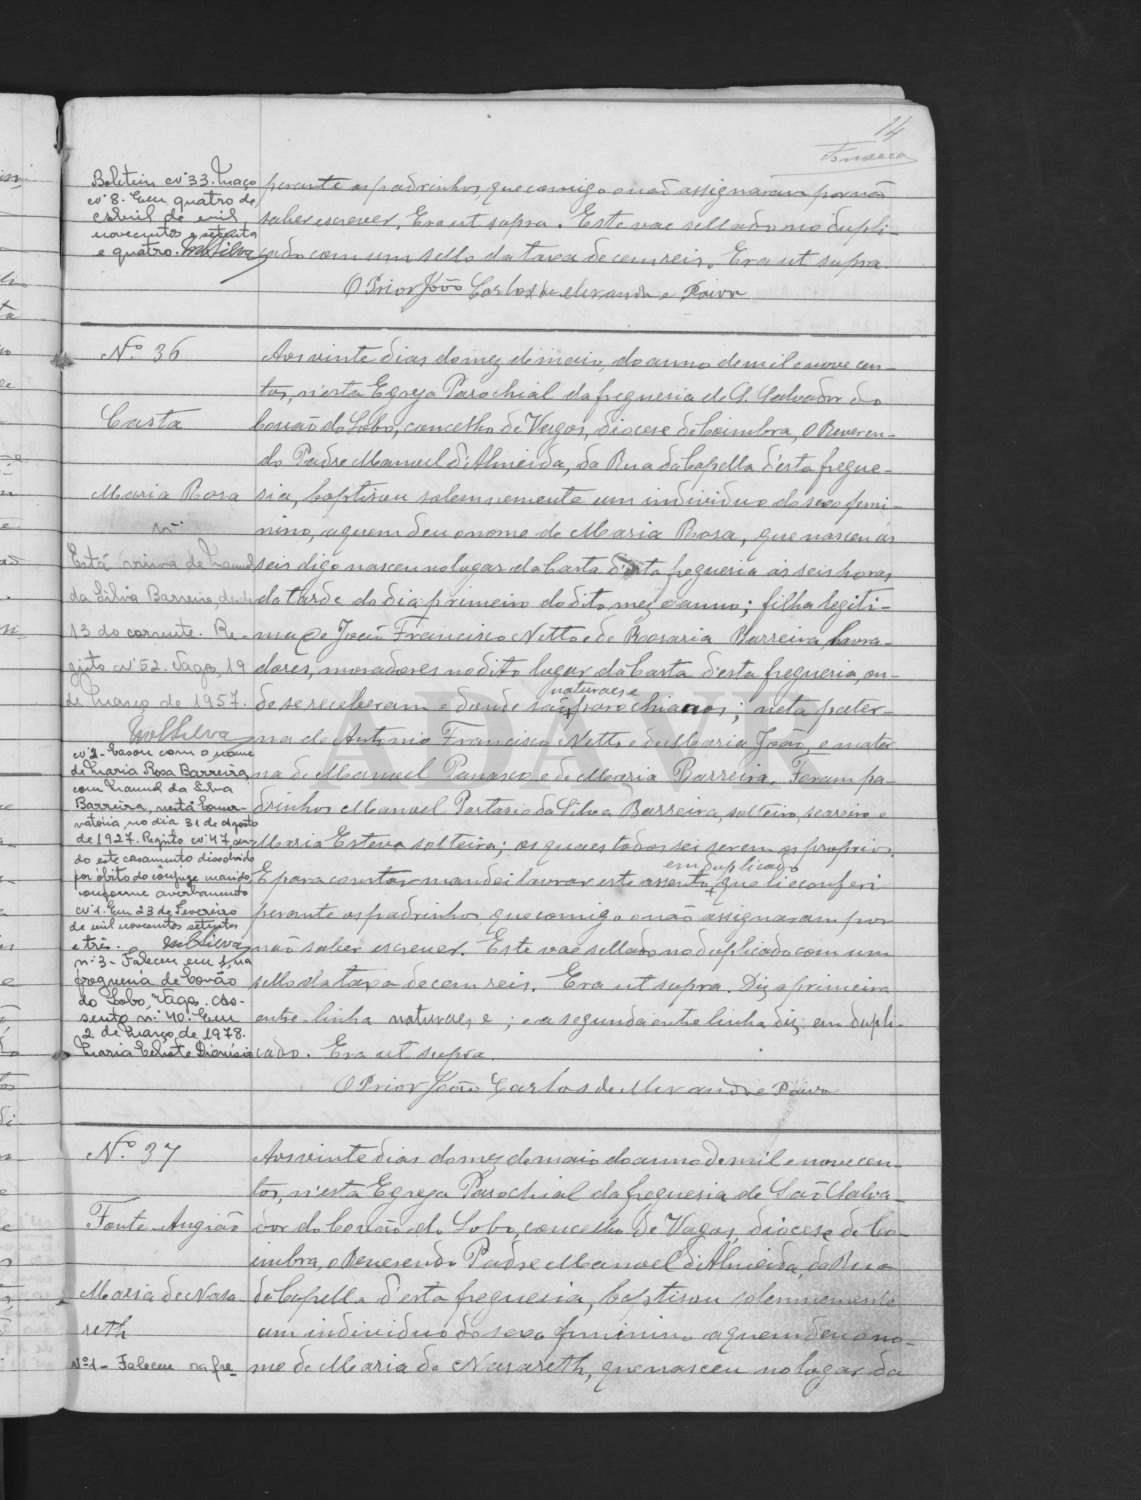 14
Fonseca
Boletim nº 33. Maço
nº 8. Em quatro de
Abril de mil
novecentos e setenta
e quatro. MSilva
perante os padrinhos, que comigo o não assignaram por não
saber escrever. Era ut supra. Este vae sellado no dupli-
cado com um sello da taxa de cem reis. Era ut supra.
O Prior João Carlos de Miranda e Paiva
N.º 36
Casta
Maria Rosa
Aos vinte dias do mez de maio, do anno de mil e nove cen-
tos, n'esta Egreja Parochial da freguesia de S. Salvador do
Covão do Lobo, concelho de Vagos, diocese de Coimbra, o Reveren-
do Padre Manuel d'Almeida, da Rua da Capella d'esta fregue-
sia, baptisou solemnemente um individuo do sexo femi-
nino, a quem deu o nome de Maria Rosa, que nasceu ás
seis digo nasceu no lugar da Casta d'esta freguesia ás seis horas
da tarde do dia primeiro do dito mez e anno; filha legiti-
ma de João Francisco Netto e de Rosaria Barreira, lavra-
dores, moradores no dito lugar da Casta d'esta freguesia, on-
de se receberam e d'onde são naturaes e parochianos; neta pater-
na de Antonio Francisco Netto e de Maria João, e mater
na de Manuel Panasco e de Maria Barreira. Foram pa-
drinhos Manuel Tertasio da Silva Barreira, solteiro, e
Maria Esteva solteira; os quaes todos sei serem os proprios.
E para constar mandei lavrar este assento em duplicado, que li e conferi
perante os padrinhos que comigo o não assignaram por
não saber escrever. Este vae sellado no duplicado com um
sello da taxa de cem reis. Era ut supra. Diz a primeira
entre-linha naturaes e; e a segunda entre linha diz em dupli-
cado. Era ut supra.
O Prior João Carlos de Miranda e Paiva
Está viuva de Manuel
da Silva Barreira, desde
13 do corrente. Re-
gisto nº 52. Vagos, 19
de Março de 1957.
MSilva
nº 2 - Casou com o nome
de Maria Rosa Barreira,
com Manuel da Silva
Barreira, nesta Conser-
vatória, no dia 31 de Agosto
de 1927. Registo nº 47, sen-
do este casamento dissolvido
por óbito do cônjuge marido,
conforme averbamento
nº 1. Em 23 de Fevereiro
de mil novecentos setenta
e três. MSilva
nº 3 - Faleceu em 1, na
freguesia de Covão
do Lobo, Vagos. As-
sento nº 40. Em
2 de Março de 1978.
Maria Celeste Dionísio
N.º 37
Fonte Angião
Maria de Nasa
reth
Nº 1 - Faleceu na fre-
Aos vinte dias do mez de maio do anno de mil e nove cen-
tos, n'esta Egreja Parochial da freguesia de São Salva-
dor do Covão do Lobo, concelho de Vagos, diocese de Co-
imbra, o Reverendo Padre Manoel d'Almeida, da Rua
da Capella d'esta freguesia, baptisou solemnemente
um individuo do sexo feminino a quem deu o no-
me de Maria de Nasareth, que nasceu no lugar da
ADAVR